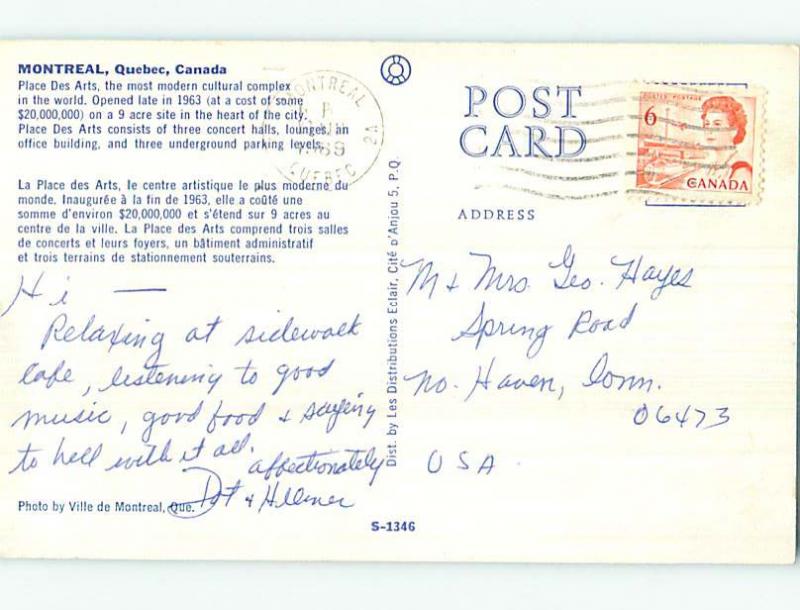 MONTREAL, Quebec, Canada
Place Des Arts, the most modern cultural complex
in the world. Opened late in 1963 (at a cost of some
$20,000,000) on a 9 acre site in the heart of the city.
Place Des Arts consists of three concert halls, lounges, an
office building, and three underground parking levels.
La Place des Arts, le centre artistique le plus moderne du
monde. Inaugurée à la fin de 1963, elle a coûté une
somme d'environ $20,000,000 et s'étend sur 9 acres au
centre de la ville. La Place des Arts comprend trois salles
de concerts et leurs foyers, un bâtiment administratif
et trois terrains de stationnement souterrains.
Hi —
Relaxing at sidewalk
cafe, listening to good
music, good food & saying
to hell with it all.
affectionately
Dot &
Photo by Ville de Montreal, Que.
Dist. by Les Distributions Eclair, Cité d'Anjou 5, P.Q.
S-1346
MONTREAL
QUEBEC
2A
POST
CARD
ADDRESS
POSTES POSTAGE
6
CANADA
M & Mrs. Geo. Hayes
Spring Road
No. Haven, Conn.
06473
USA